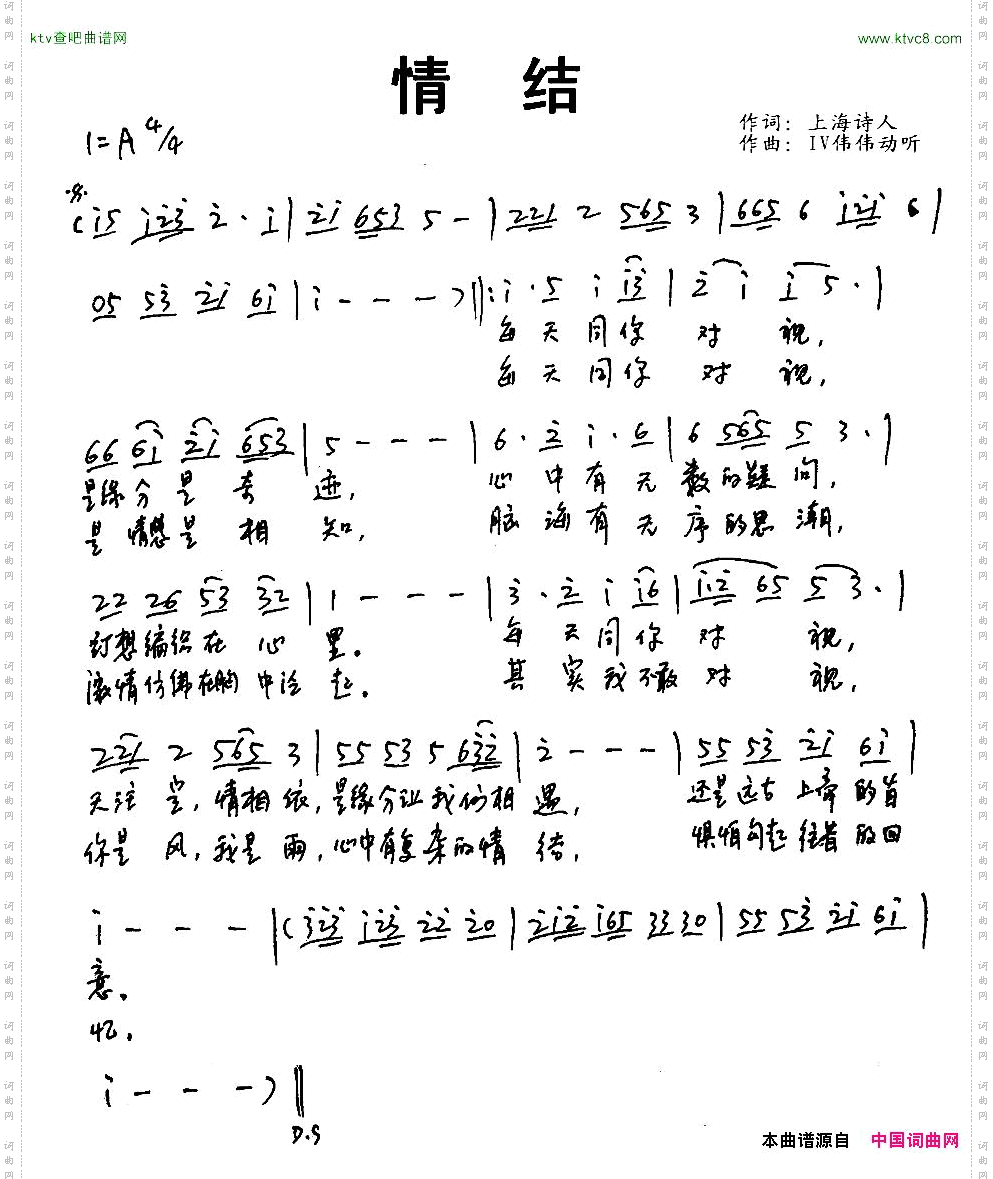 ktv查吧曲谱网
www.ktvc8.com
情 结
作词: 上海诗人
作曲: IV伟伟动听
1=A 4/4
(i5 i23 2· i | 2i 653 5 - | 221 2 565 3 | 665 6 i2i 6 |
05 53 2i 6i | i - - - ) ‖: i· 5 i i3 | 2 i i 5· |
每天同你 对 视,
每天同你 对 视,
66 6i 2i 653 | 5 - - - | 6· 2 i· 6 | 6 565 5 3· |
是缘分是 奇 迹, 心中有无数的疑问,
是情愁是 相 知, 脑海有无序的思潮,
22 26 53 32 | 1 - - - | 3· 2 i i6 | ii2 65 5 3· |
幻想编织在 心 里。 每天同你 对 视,
激情仿佛在胸中泛起。 其实我不敢 对 视,
221 2 565 3 | 55 53 5 632 | 2 - - - | 55 53 2i 6i |
天注定,情相依,是缘分让我们相遇, 还是远古上帝的旨
你是风,我是雨,心中有复杂的情结, 惧怕勾起往昔的回
i - - - | (323 i23 22 20 | 2i2 i65 33 30 | 55 53 2i 6i |
意。
忆。
i - - - ) ‖
D.S
本曲谱源自 中国词曲网